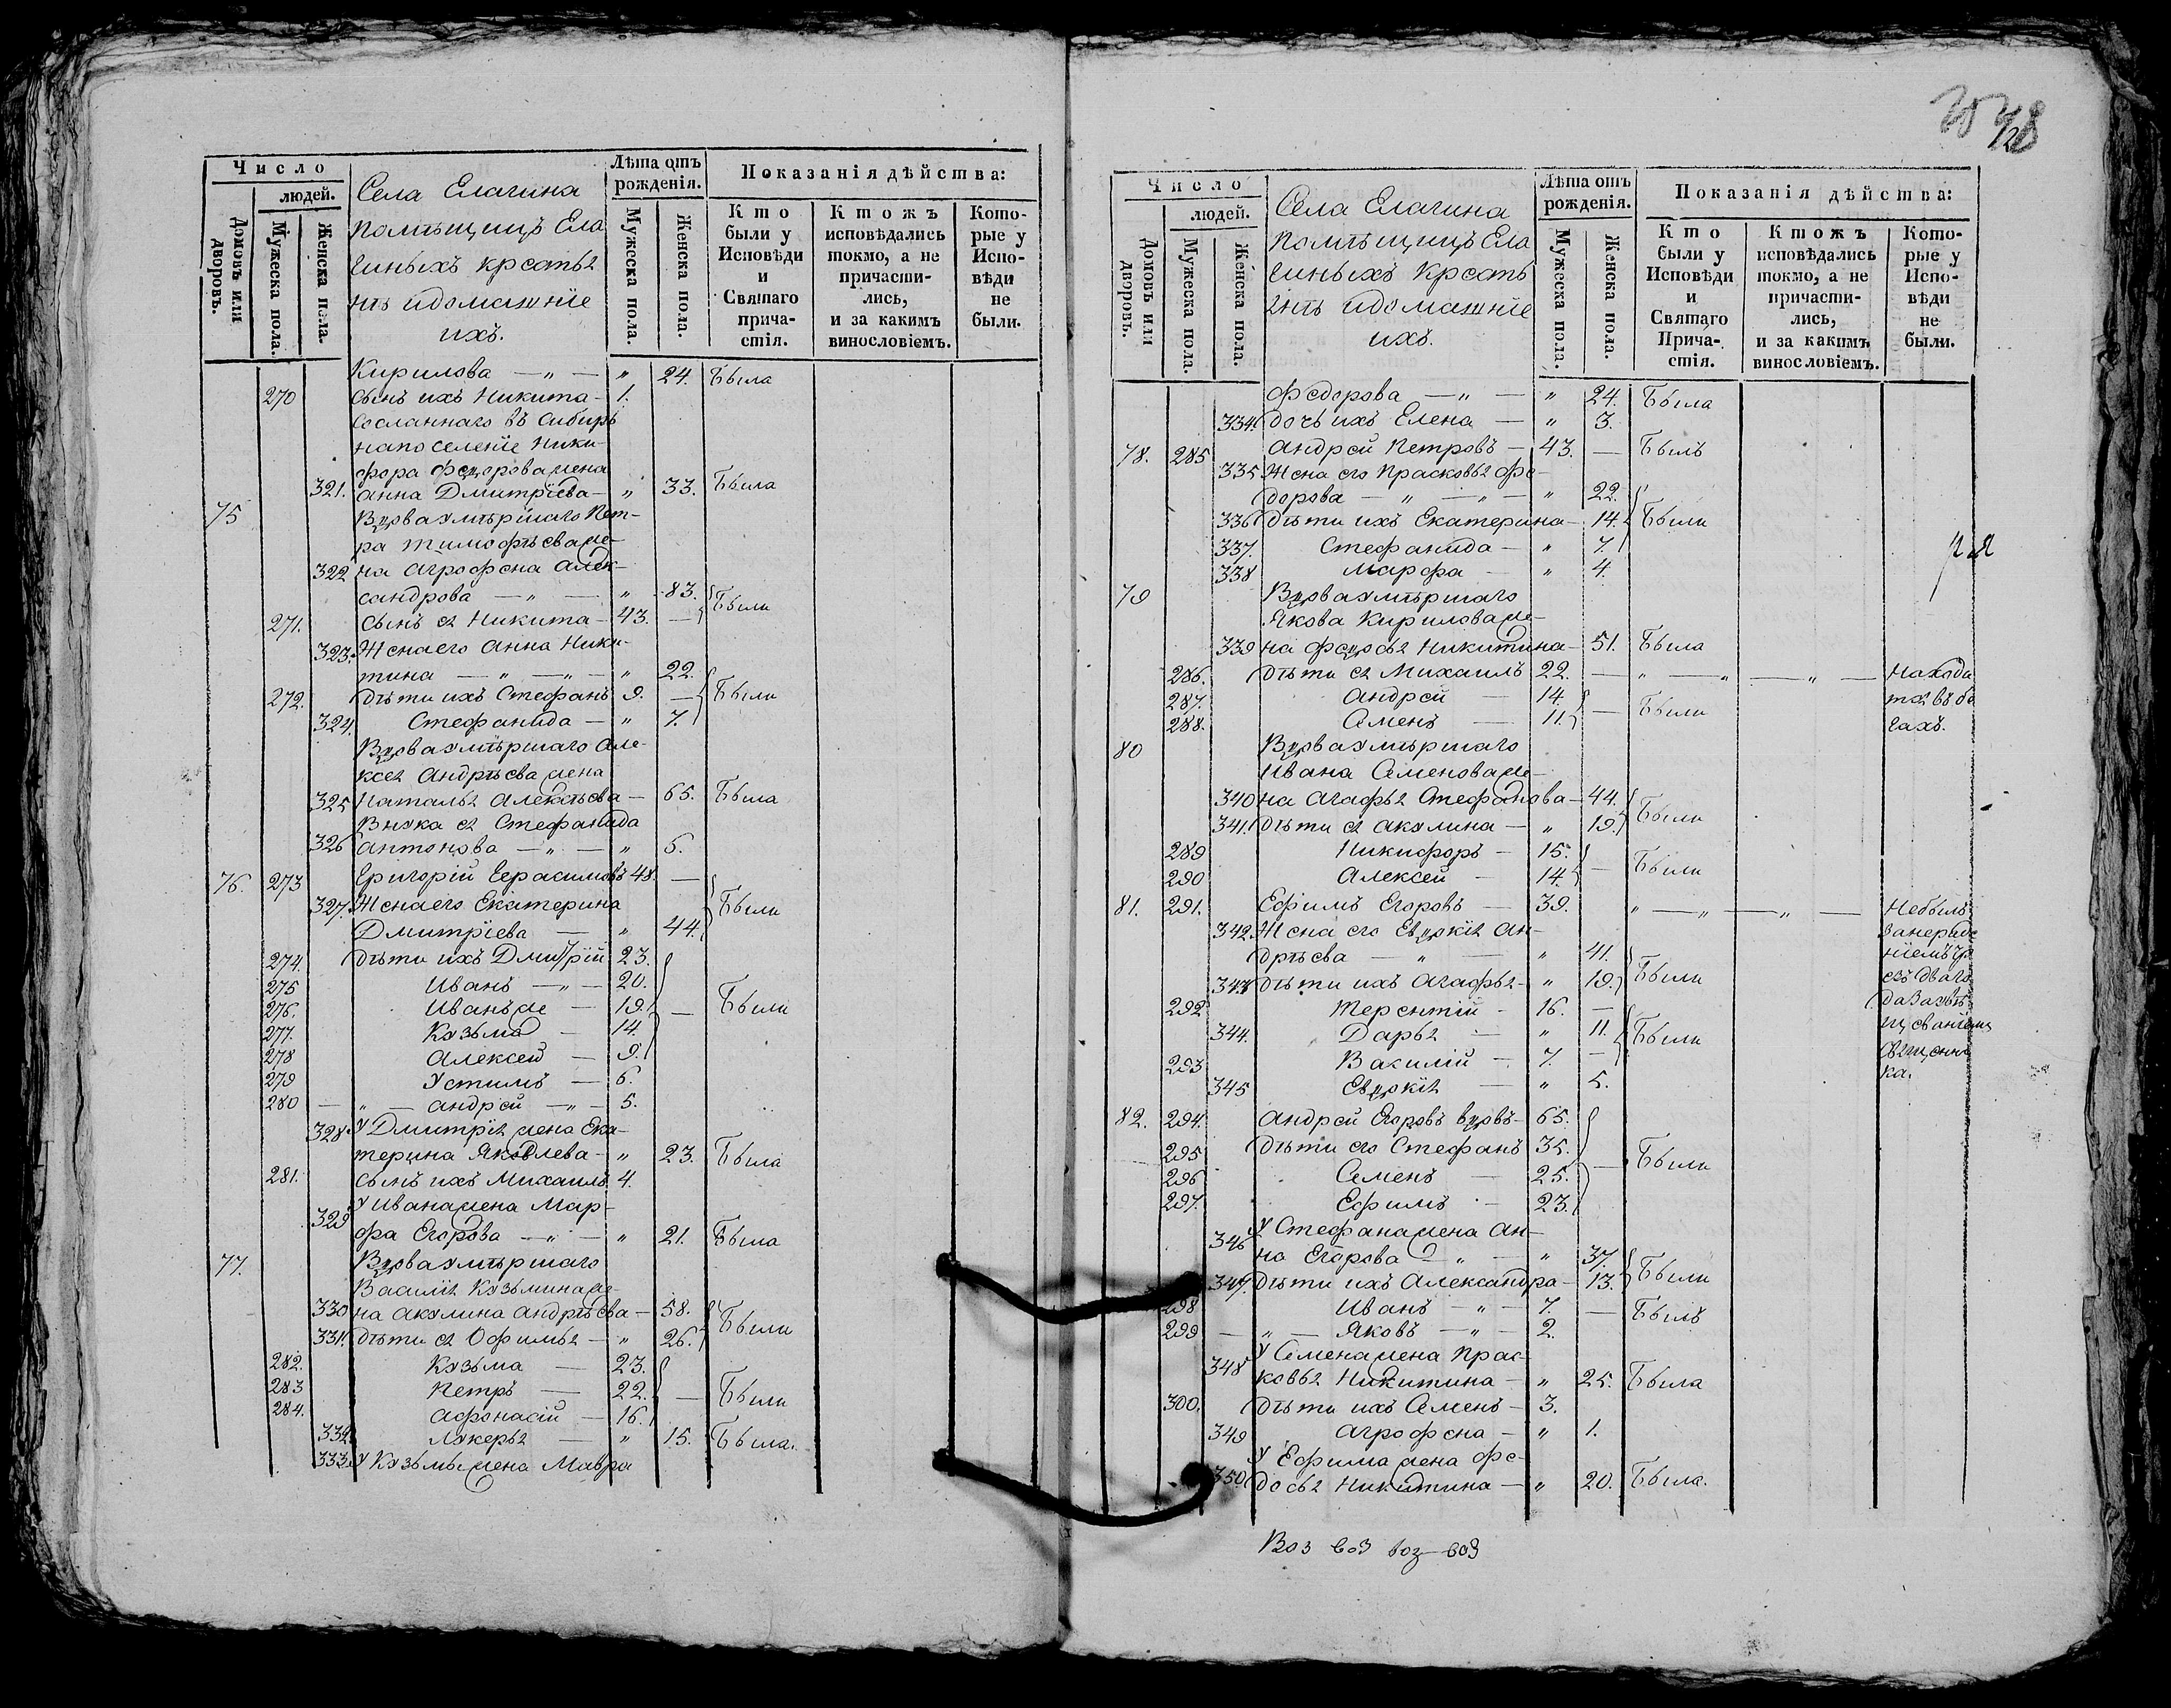 Число
людей.
Домовъ или дворовъ.
Мужеска пола.
Женска пола.
Села Елагина
помѣщицъ Ела
гиныхъ кресть
нѣ идомашніе
ихъ.
Лѣта отъ рожденія.
Мужеска пола.
Женска пола.
Показанія дѣйства:
Кто были у Исповѣди и Святаго причастія.
Ктожъ исповѣдались токмо, а не причастились, и за какимъ винословіемъ.
Которые у Исповѣди не были.
Кирилова — „ — „ 24. Была
270 Сынъ ихъ Никита — 1.
Сосланнаго въ Сибирь
напоселеніе Ники-
фора Федорова жена
321. Анна Дмитріева — „ 33. Была
75 Вдова умѣршаго Пет-
ра Тимофѣева же-
322 на Агрофена Алек-
сандрова — „ — „ 83. Были
271. Сынъ ея Никита — 43. —
323. Жена его Анна Ники-
тина — „ — „ — „ 22.
272. дѣти ихъ Стефанъ 9. — Были
324. Стефанида — „ 7.
Вдова умѣршаго Але-
ксея Андрѣева жена
325 Наталья Алексѣева — 65. Была
Внука ея Стефанида
326 Антонова — „ — „ 6.
76. 273 Григорій Герасимовъ 48. —
327. Жена его Екатерина Были
Дмитріева — „ 44.
274. дѣти ихъ Дмитрій 23.
275 Иванъ — „ — 20.
276. Иванъ же — 19. — Были
277. Кузьма — 14.
278 Алексей — 9.
279 Устимъ — 6.
280 — „ — Андрей — „ — 5.
328 У Дмитрія жена Ека-
терина Яковлева — „ 23. Была
281. Сынъ ихъ Михаилъ 4.
У Ивана жена Мар-
329 фа Егорова — „ — „ 21. Была
77. Вдова умѣршаго
Васи́лія Кузьмина же-
330 на Акулина Андрѣева — 58. Были
331. дѣти ея Офимья — „ 26.
282. Кузьма — 23.
283 Петръ — 22. — Были
284. Афонасій — 16.
332 Лукерья — „ 15. Была.
333. У Кузьмы жена Мавра
28
Число
людей.
Домовъ или дворовъ.
Мужеска пола.
Женска пола.
Села Елагина
помѣщицъ Ела
гиныхъ кресть
янѣ идомашніе
ихъ.
Лѣта отъ рожденія.
Мужеска пола.
Женска пола.
Показанія дѣйства:
Кто были у Исповѣди и Святаго Причастія.
Ктожъ исповѣдались токмо, а не причастились, и за какимъ винословіемъ.
Которые у Исповѣди не были.
Федорова — „ — „ 24. Была
334. дочь ихъ Елена — „ 3.
78. 285 Андрей Петровъ — 43. — Былъ
335 Жена его Прасковья Фе-
дорова — „ — „ — „ 22.
336 дѣти ихъ Екатерина — 14. Были
337. Стефанида — „ 7.
338 Марфа — „ 4.
79 Вдова умѣршаго
Якова Кирилова же-
339 на Федосья Никитина — 51. Была
286. дѣти ея Михаилъ 22. — „ — „ — „ — Находи
287. Андрей — 14. — Были тся въ бѣ
288. Семенъ — 11. гахъ.
80 Вдова умѣршаго
Ивана Семенова же-
340 на Агафья Стефанова — 44. Были
341. дѣти ея Акулина — „ 19.
289 Никифоръ — 15. — Были
290 Алексей — 14.
81. 291. Ефимъ Егоровъ — 39. „ — „ — „ — Небылъ
342 Жена его Евдокія Ан-
дрѣева — „ — „ 41. Были
343 дѣти ихъ Агафья — „ 19.
292 Терентій — 16. —
344. Дарья — „ 11. Были
293 Василій — 7. —
345 Евдокія — „ 5.
82. 294. Андрей Егоровъ вдовъ — 65.
295 дѣти его Стефанъ 35. — Были
296 Семенъ — 25.
297. Ефимъ — 23.
У Стефана жена Ан-
346 на Егорова — „ — „ 37. Были
347. дѣти ихъ Александра — 13.
298 Иванъ — „ — 7. — Былъ
299 — „ — Яковъ — „ — 2.
У Семена жена Прас-
348 ковья Никитина — „ 25. Была
300. дѣти ихъ Семенъ — 3.
349 Агрофена — „ 1.
У Ефима жена Фе-
350 досья Никитина — „ 20. Была.
Воз воз воз воз